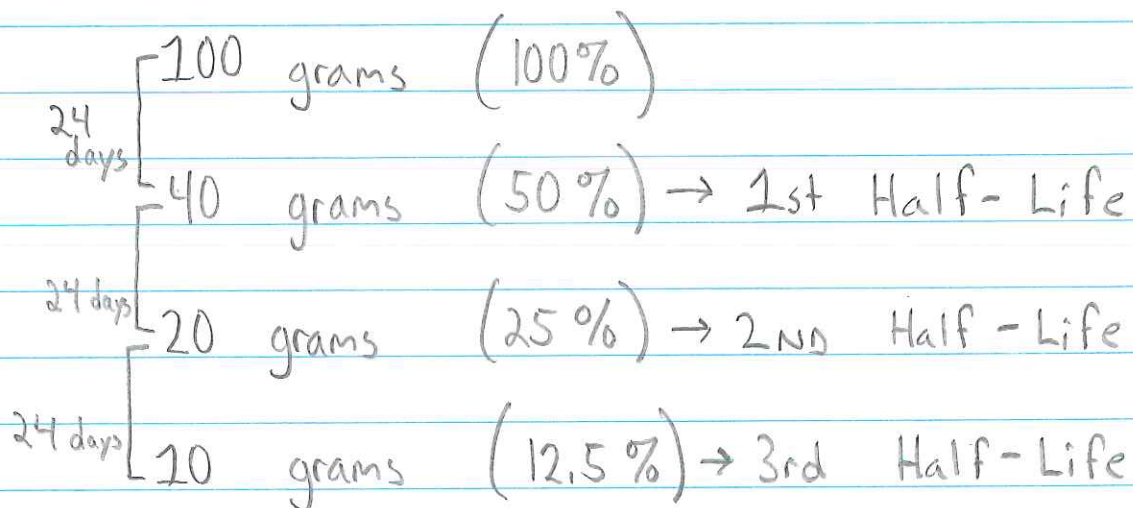 100 grams (100%)
24 days
40 grams (50%) → 1st Half-Life
24 days
20 grams (25%) → 2ND Half-Life
24 days
10 grams (12.5%) → 3rd Half-Life